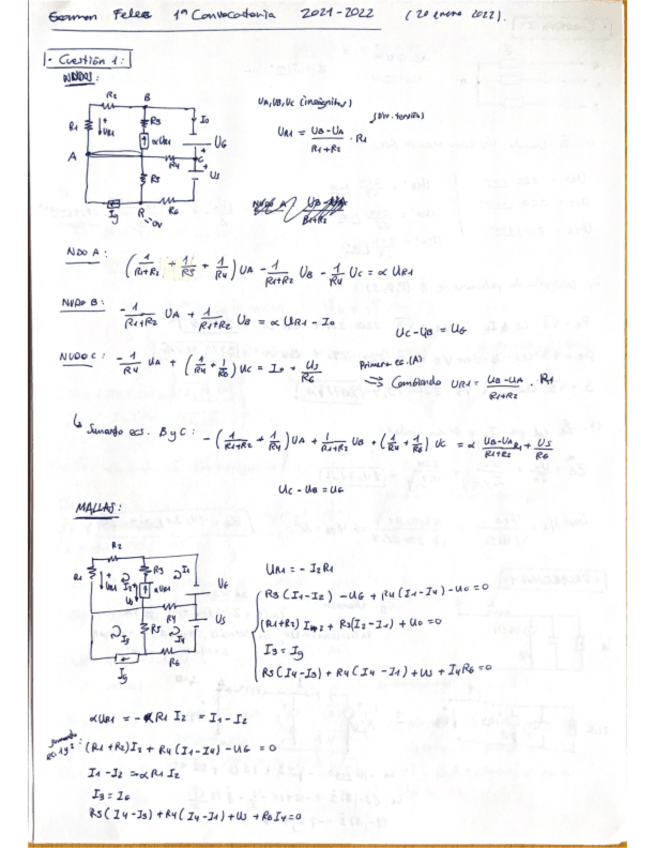 Examen Feles 1ª Convocatoria 2021-2022 (20 enero 2022).
1. Cuestión 1:
NUDOS:
R2 B
R1 UR1 R3 I0
αUR1 UG
A R4 C
R5 US
Ig R R6
0V
UA, UB, UC (incógnitas)
(div. tensión)
UR1 = UB-UA / R1+R2 · R1
NUDO A UB-UA / R1+R2
NDO A: (1/R1+R2 + 1/R5 + 1/R4) UA - 1/R1+R2 UB - 1/R4 UC = α UR1
NUDO B: - 1/R1+R2 UA + 1/R1+R2 UB = α UR1 - I0
UC - UB = UG
NUDO C: - 1/R4 UA + (1/R4 + 1/R6) UC = I0 + US/R6
Primera ec. (A)
⇒ Cambiando UR1 = UB-UA / R1+R2 · R1
↳ Sumando ect. B y C: - (1/R1+R2 + 1/R4) UA + 1/R1+R2 UB + (1/R4 + 1/R6) UC = α UB-UA / R1+R2 R1 + US/R6
UC - UB = UG
MALLAS:
R2
R1 UR1 I2 R3 I1
U0 αUR1 UG
R4 US
I3 R5 I4
Ig R6
UR1 = - I2 R1
R3 (I1-I2) - UG + R4 (I1-I4) - U0 = 0
(R1+R2) I2 + R3 (I2-I1) + U0 = 0
I3 = Ig
R5 (I4-I3) + R4 (I4-I1) + US + I4R6 = 0
αUR1 = - αR1 I2 = I1 - I2
Sumando
ec. 1 y 2: (R1+R2) I2 + R4 (I1-I4) - UG = 0
I1 - I2 = αR1 I2
I3 = IG
R5 (I4-I3) + R4 (I4-I1) + US + R6 I4 = 0